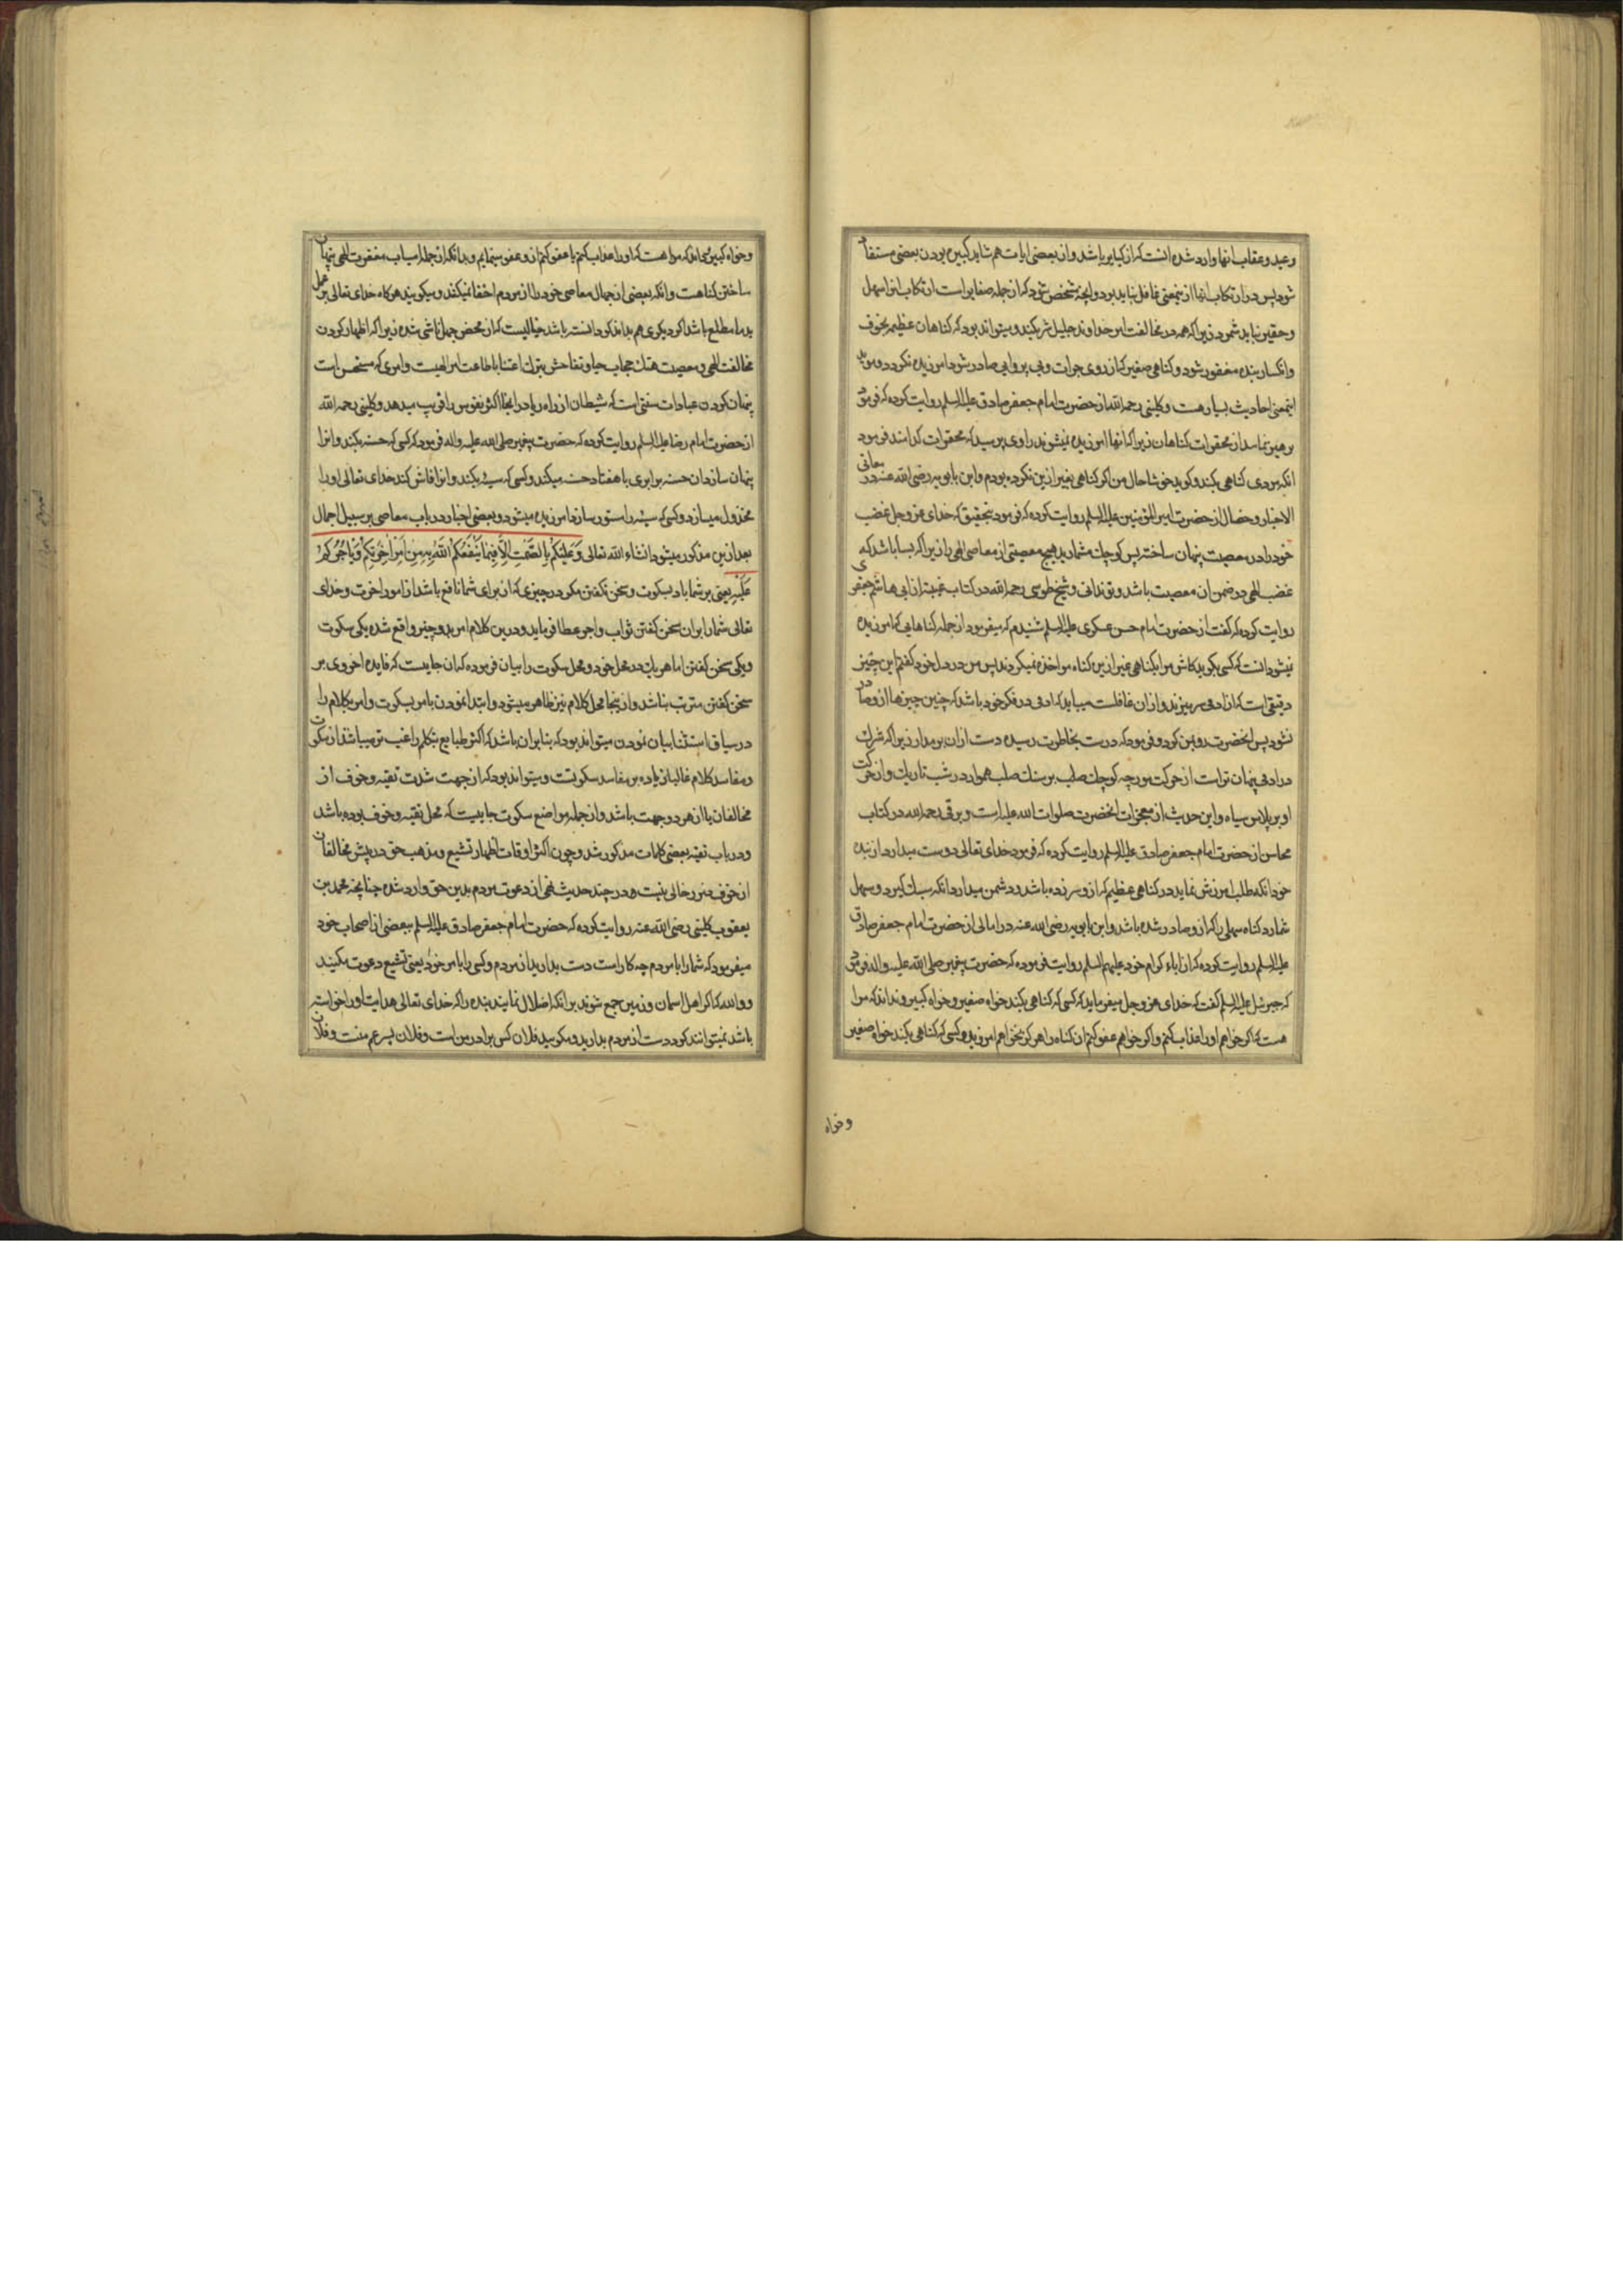 وعید و عقاب انها وارد شده انست که از کبایر باشد و از بعضی ایات هم شاید کبیره بودن بعضی مستفاد
شود پس در ارتکاب انها از ینمعنی غافل نباید بود و انچه مشخص شود که از جمله صغایر است ارتکاب انرا سهل
و حقیر نباید شمرد زیرا که همه در مخالفت امر خداوند جلیل شریکند و میتواند بود که گناهان عظیم بخوف
و انکسار بنده مغفور شود و گناهی صغیر که از روی جرات و بی پروایی صادر شود امرزیده نکردد و موید
اینمعنی احادیث بسیار هست و کلینی رحمه الله از حضرت امام جعفر صادق علیه السلم روایت کرده که فرمود
پرهیز نماید از محقرات گناهان زیرا که انها امرزیده نمیشوند راوی پرسید که محقرات کدامند فرمود
انکه مردی گناهی بکند و کوید خوشا حال من اگر گناهی بغیر ازین نکرده بودم و ابن بابویه رضی الله عنه در معانی
الاخبار و خصال از حضرت امیر المؤمنین علیه السلم روایت کرده که فرمود بتحقیق که خدای عز و جل غضب
خود را در معصیت پنهان ساخته پس کوچک مشمارید هیچ معصیتی از معاصی الهی را زیرا که بسا باشد که
غضب الهی در ضمن ان معصیت باشد و تو ندانی و شیخ طوسی رحمه الله در کتاب غیبة از ابی هاشم جعفری
روایت کرده که گفت از حضرت امام حسن عسکری علیه السلم شنیدم که میفرمود از جمله گناهایی که امرزیده
نمیشود انست که کسی بکوید کاش مرا بگناهی غیر ازین گناه مواخذه نمیکردند پس من در دل خود گفتم این چیز
دقیقی است که از ادمی سر میزند و از ان غافلست میباید که ادمی در فکر خود باشد که چنین چیزها از و صادر
نشود پس انحضرت رو بمن کرد و فرمود که درست بخاطرت رسیده دست از ان بر مدار زیرا که شرک
در ادمی پنهان تر است از حرکت مورچه کوچک صلب بر سنک صلب هموار در شب تاریک و از حرکت
او بر پلاس سیاه و این حدیث از معجزات انحضرت صلوات الله علیه است و برقی رحمه الله در کتاب
محاسن از حضرت امام جعفر صادق علیه السلم روایت کرده که فرمود خدای تعالی دوست میدارد از بنده
خود انکه طلب امرزش نماید در گناهی عظیم که از و سر زده باشد و دشمن میدارد انکه سبک کیرد و سهل
شمارد گناه سهلی را که از و صادر شده باشد و ابن بابویه رضی الله عنه در امالی از حضرت امام جعفر صادق
علیه السلم روایت کرده که از اباء کرام خود علیهم السلم روایت فرموده که حضرت پیغمبر صلی الله علیه و اله فرمود
که جبرئیل علیه السلم گفت که خدای عز و جل میفرماید که کسی که گناهی بکند خواه صغیر و خواه کبیر و نداند که مرا
هست که اگر خواهم او را عذاب کنم و اگر خواهم عفو کنم ان گناه را هرکز نخواهم امرزید و کسی که گناهی بکند خواه صغیر
وخواه
و خواه کبیر و بداند که مرا هست که او را عذاب کنم یا عفو کنم از و عفو مینمایم و بدانکه از جمله اسباب مغفرت الهی پنهان
ساختن گناهست و انکه بعضی از جهال معاصی خود را از مردم اخفا نمیکنند و میکویند هرکاه خدای تعالی بر عمل
بد ما مطلع باشد اکر دیکری هم بداند کو دانسته باشد خیالیست که از محض جهل ناشی شده زیرا که اظهار کردن
مخالفت الهی و معصیت هتک حجاب حیا و تفاحش بترک اعتنا باطاعت امر الهیست و امری که مستحسن است
پنهان کردن عبادات سنتی است که شیطان از راه ریا در انجا اکثر نفوس را فریب میدهد و کلینی رحمه الله
از حضرت امام رضا علیه السلم روایت کرده که حضرت پیغمبر صلی الله علیه و اله فرمود که کسی که حسنه بکند و انرا
پنهان سازد ان حسنه برابری با هفتاد حسنه میکند و کسی که سیئه بکند و انرا فاش کند خدای تعالی او را
مخذول میسازد و کسی که سیئه را مستور سازد امرزیده میشود و بعضی اخبار در باب معاصی بر سبیل اجمال
بعد ازین مذکور میشود انشاء الله تعالی وَعَلَيْكُمْ بِالصَّمْتِ اِلاّ فِيمَا يَنْفَعُكُمُ اللهُ بِهِ مِنْ اَمْرِ اٰخِرَتِكُمْ وَيَأْجُرُكُمْ
عَلَيْهِ یعنی بر شما باد بسکوت و سخن نکفتن مکر در چیزی که ان برای شما نافع باشد از امور اخرت و خدای
تعالی شما را بر ان سخن کفتن ثواب و اجر عطا فرماید و درین کلام امر بدو چیز واقع شده یکی سکوت
و یکی سخن کفتن اما هر یک در محل خود و محل سکوت را بیان فرموده که ان جاییست که فایده اخروی بر
سخن کفتن مترتب نباشد و از ینجا محل کلام نیز ظاهر میشود و ابتدا نمودن بامر بسکوت و امر بکلام را
در سیاق استثنا بیان نمودن میتواند بود که بنا بر ان باشد که اکثر طبایع بتکلم راغب تر میباشد از سکوت
و مفاسد کلام غالبا زیاده بر مفاسد سکوتست و میتواند بود که از جهت شدت تقیه و خوف از
مخالفان یا از هر دو جهت باشد و از جمله مواضع سکوت جاییست که محل تقیه و خوف بوده باشد
و در باب تقیه بعضی کلمات مذکور شد و چون اکثر اوقات اظهار تشیع و مذهب حق در پیش مخالفان
از خوف ضرر خالی نیست در چند حدیث نهی از دعوت مردم بدین حق وارد شده چنانچه محمد بن
یعقوب کلینی رضی الله عنه روایت کرده که حضرت امام جعفر صادق علیه السلم ببعضی از اصحاب خود
میفرمود که شما را با مردم چه کار است دست بدارید از مردم و کسی را بامر خود یعنی تشیع دعوت مکنید
و والله که اکر اهل اسمان و زمین جمع شوند بر انکه اضلال نمایند بنده را که خدای تعالی هدایت او را خواسته
باشد نمیتوانند کرد دست از مردم بدارید و مکویید فلان کس برادر من است و فلان پسر عم منست و فلان